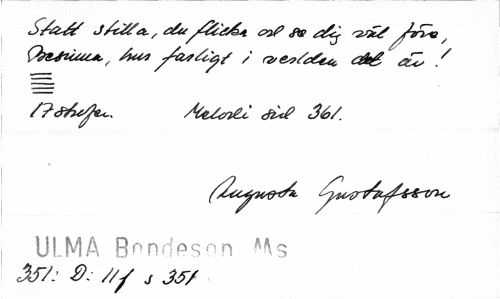 Statt stilla, du flicka och se dig väl före,
Besinna, hur farligt i verlden det är!
17 strofer. Melodi sid 361.
Augusta Gustafsson
ULMA Bondeson Ms
351: D: 11 f s 351